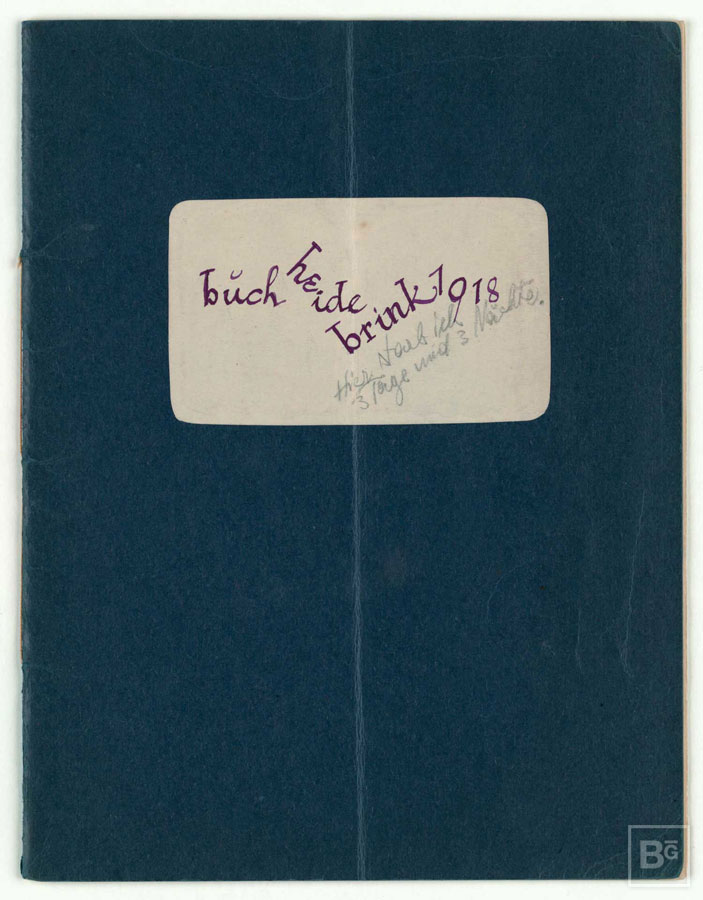 bŭch heide brink 1918
Hier
3 Tage und 3 Nächte.
BG